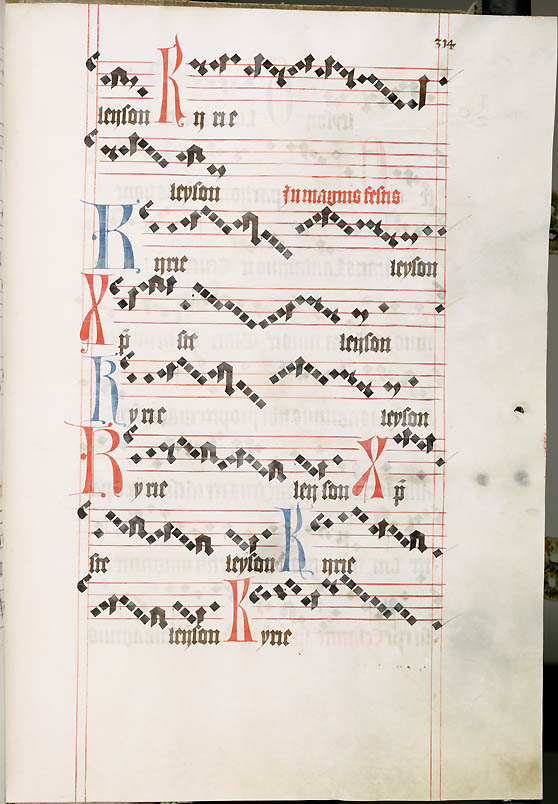 314
leyson Kyrie
leyson In magnis festis
Kyrie leyson
Xp̄ste leyson
Kyrie leyson
Kyrie leyson Xp̄
ste leyson Kyrie
leyson Kyrie